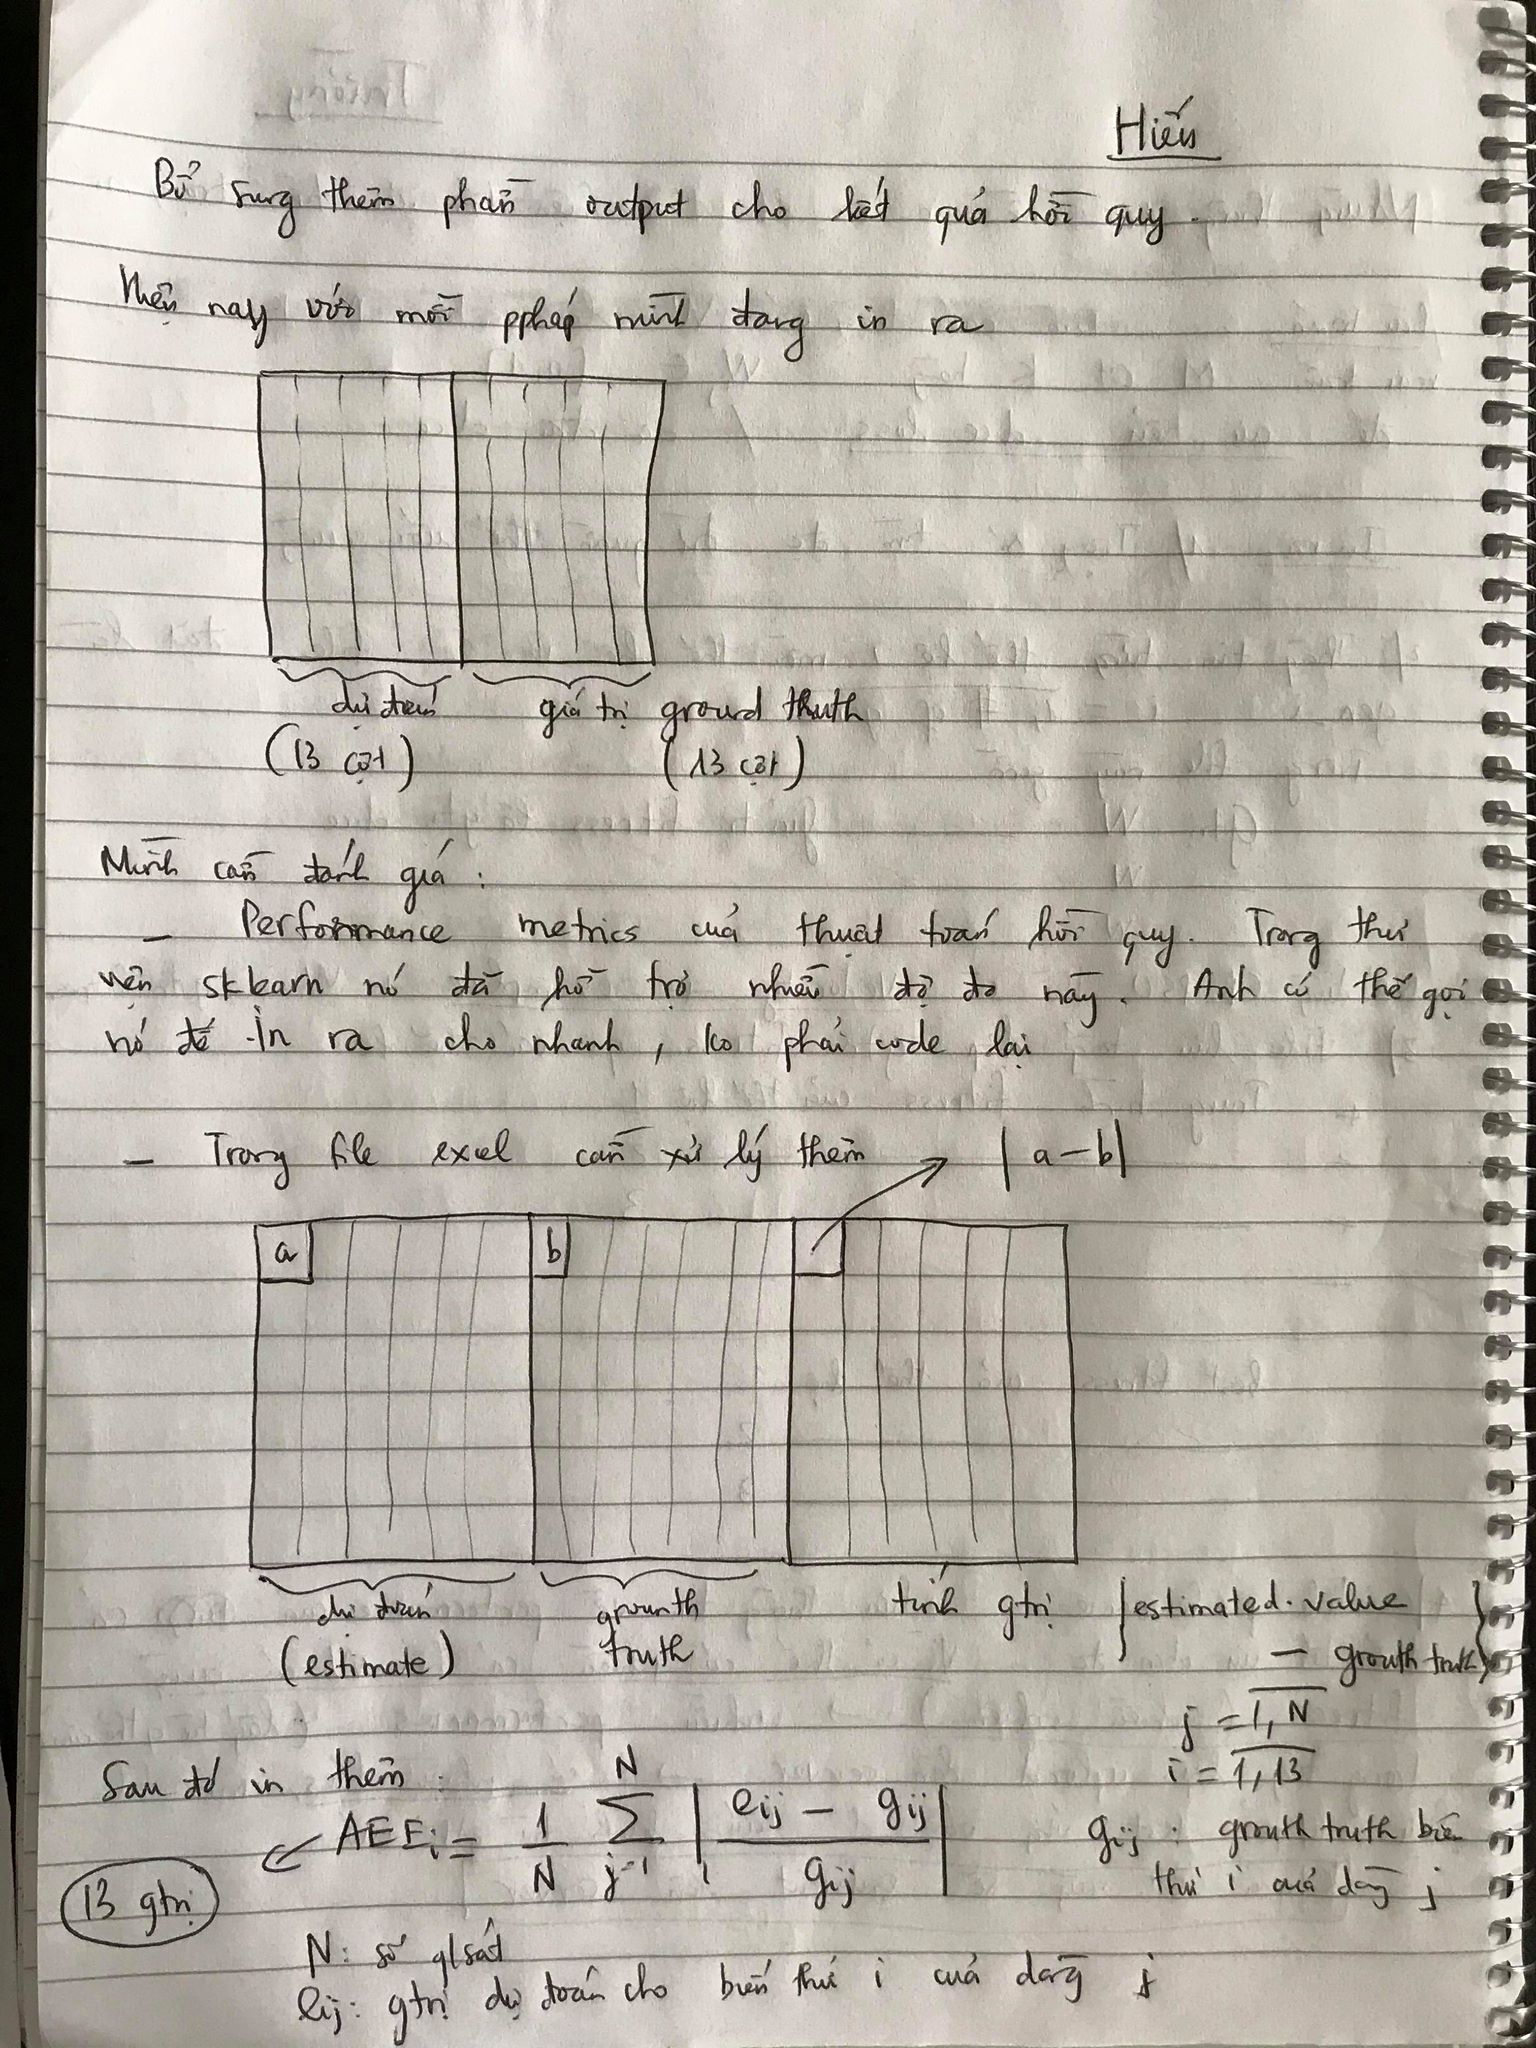 Hiến
Bổ sung thêm phần output cho kết quả hồi quy.
Hiện nay với mỗi ppháp mình đang in ra
dự đoán giá trị ground thuth
(13 cột) (13 cột)
Mình cần đánh giá :
– Performance metrics của thuật toán hồi quy. Trong thư
viện sklearn nó đã hỗ trợ nhiều độ đo này. Anh có thể gọi
nó để in ra cho nhanh, ko phải code lại
– Trong file excel cần xử lý thêm |a-b|
a b
dự đoán grounth tính gtrị |estimated.value
(estimate) truth – grouth truth|
j = 1,N
i = 1,13
Sau đó in thêm :
AEE_i = 1/N \sum_{j=1}^{N} | (e_{ij} - g_{ij}) / g_{ij} |
g_{ij} : grouth truth biến
thứ i của dòng j
13 gtrị
N: số q/sát
e_{ij}: gtrị dự đoán cho biến thứ i của dòng j